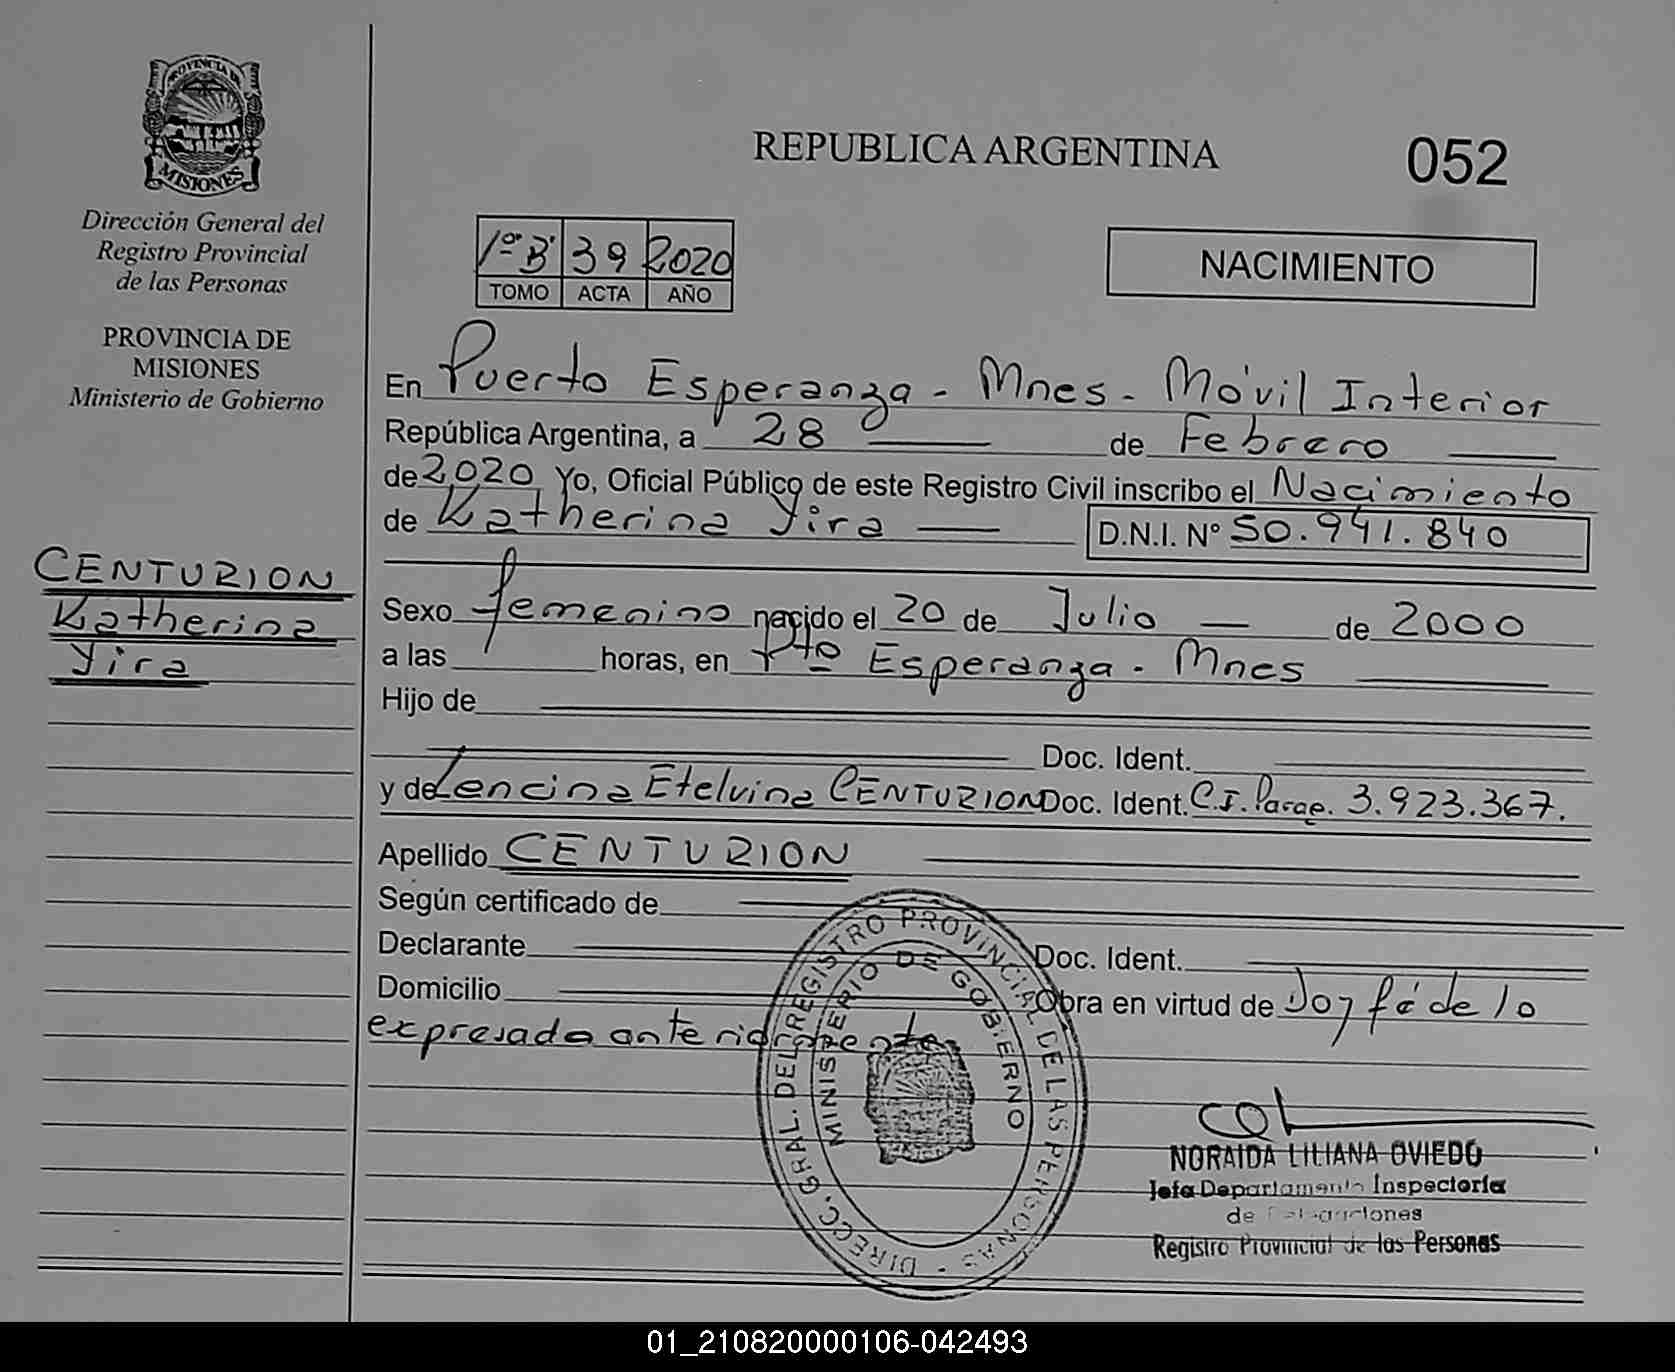 PROVINCIA DE
MISIONES
Dirección General del
Registro Provincial
de las Personas
PROVINCIA DE
MISIONES
Ministerio de Gobierno
CENTURION
Katherina
Yira
REPUBLICA ARGENTINA
052
1º B 39 2020
TOMO ACTA AÑO
NACIMIENTO
En Puerto Esperanza - Mnes - Móvil Interior
República Argentina, a 28 de Febrero
de 2020 Yo, Oficial Público de este Registro Civil inscribo el Nacimiento
de Katherina Yira D.N.I. Nº 50.941.840
Sexo femenino nacido el 20 de Julio de 2000
a las horas, en Pto Esperanza - Mnes
Hijo de
Doc. Ident.
y de Lencina Etelvina CENTURION Doc. Ident. C.I. Parag. 3.923.367.
Apellido CENTURION
Según certificado de
Declarante Doc. Ident.
Domicilio Obra en virtud de Doy fé de lo
expresado anteriormente
DIRECC. GRAL. DEL REGISTRO PROVINCIAL DE LAS PERSONAS -
MINISTERIO DE GOBIERNO
NORAIDA LILIANA OVIEDO
Jefa Departamento Inspectoría
de Delegaciones
Registro Provincial de las Personas
01_210820000106-042493